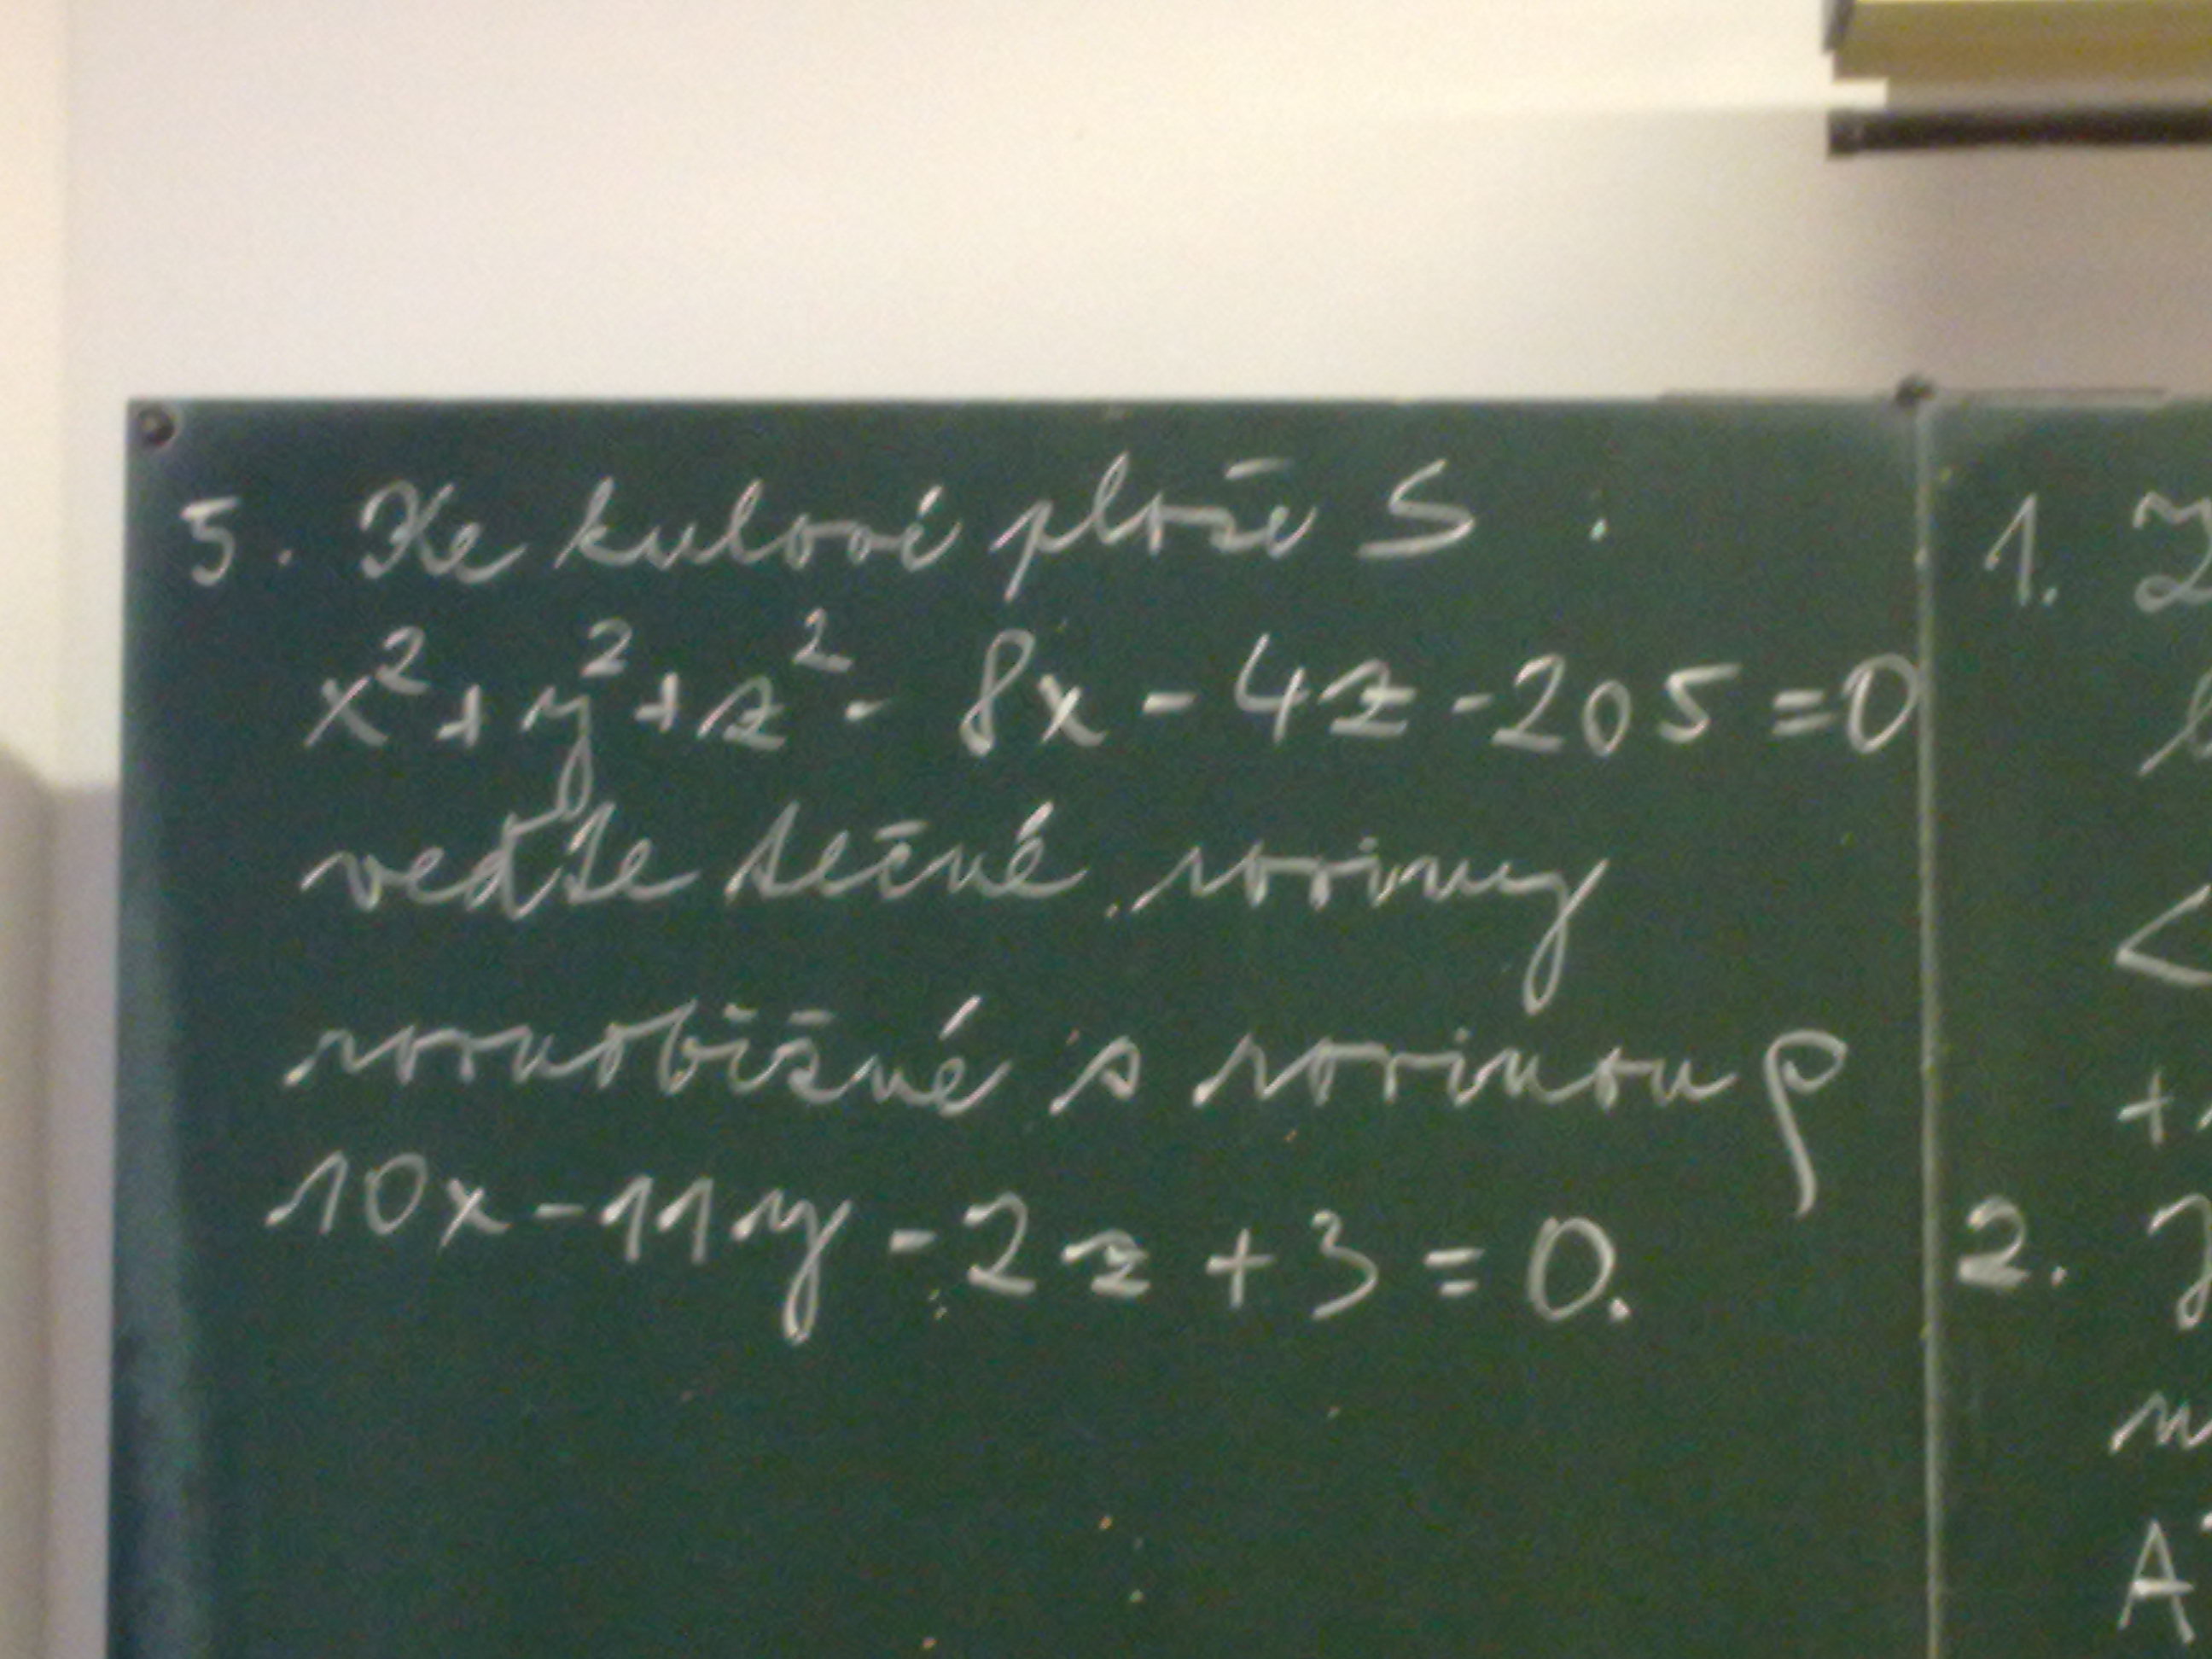 5. Ke kulové ploše S
x²+y²+z²- 8x - 4z -205 =0
veďte tečné roviny
rovnoběžné s rovinou ρ
10x -11y -2z +3 = 0.
1.
2.
A